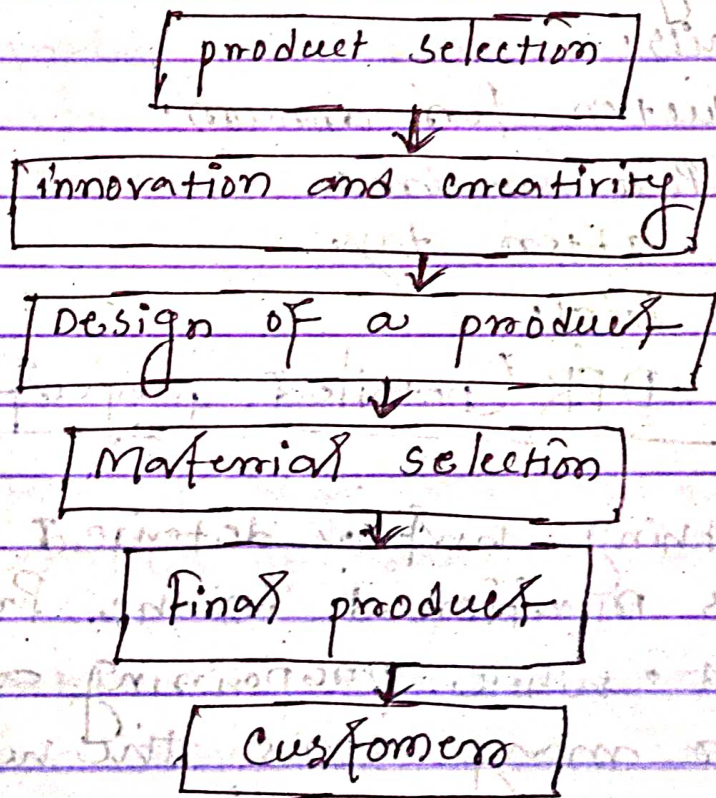 product selection
innovation and creativity
Design of a product
Material selection
Final product
Customers